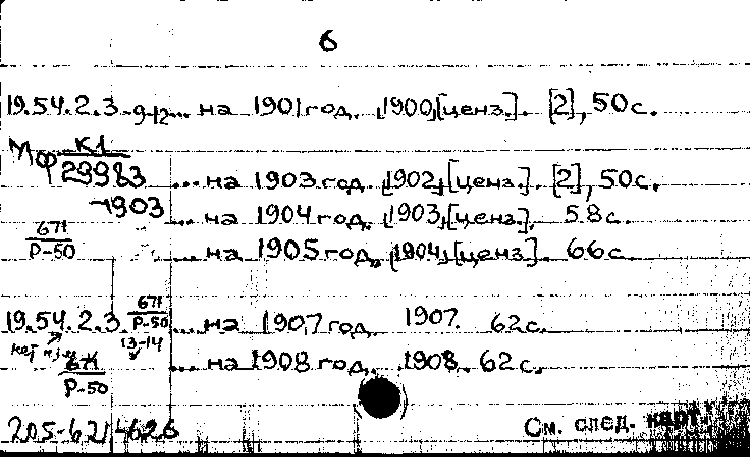 6
19.54.2.3-9-12... на 1901 год. [1900][ценз.]. [2], 50 с.
Мф К1
29983 ... на 1903 год. [1902][ценз.]. [2], 50 с.
-1903 ... на 1904 год. [1903][ценз]. 58 с.
671
Р-50 ... на 1905 год. [1904][ценз]. 66 с.
671
19.54.2.3. Р-50 ... на 1907 год. 1907. 62 с.
13-14
671 ... на 1908 год. 1908. 62 с.
Р-50
205-621-4626
См. след. карт.